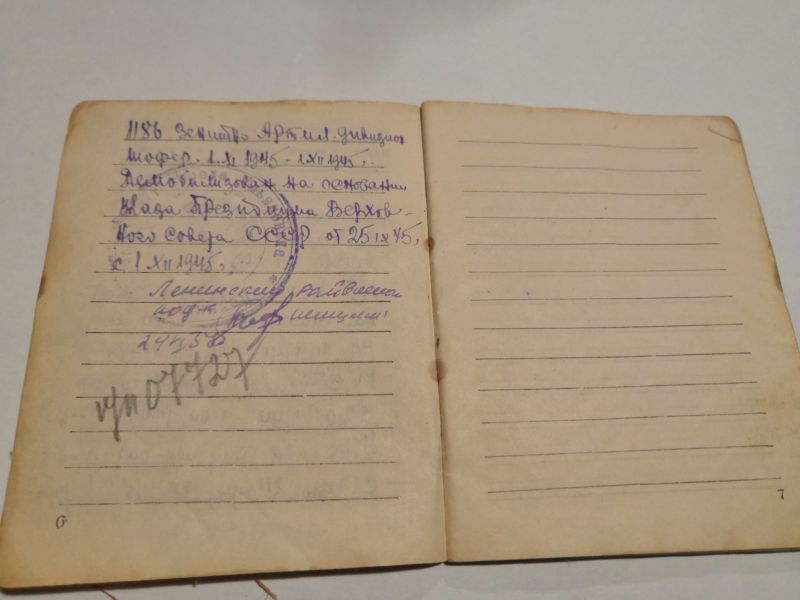 1186 Зенитно Артил. дивизион
шофер. 1.XI 1945 - 1 XII 1945,.
Демобилизован на основании
Указа Президиума Верхов-
ного совета СССР от 25 IX 45,
с 1 XII 1945,
Ленинский райвоенком
подп-к
24 VI 58
уп 07727
6
7